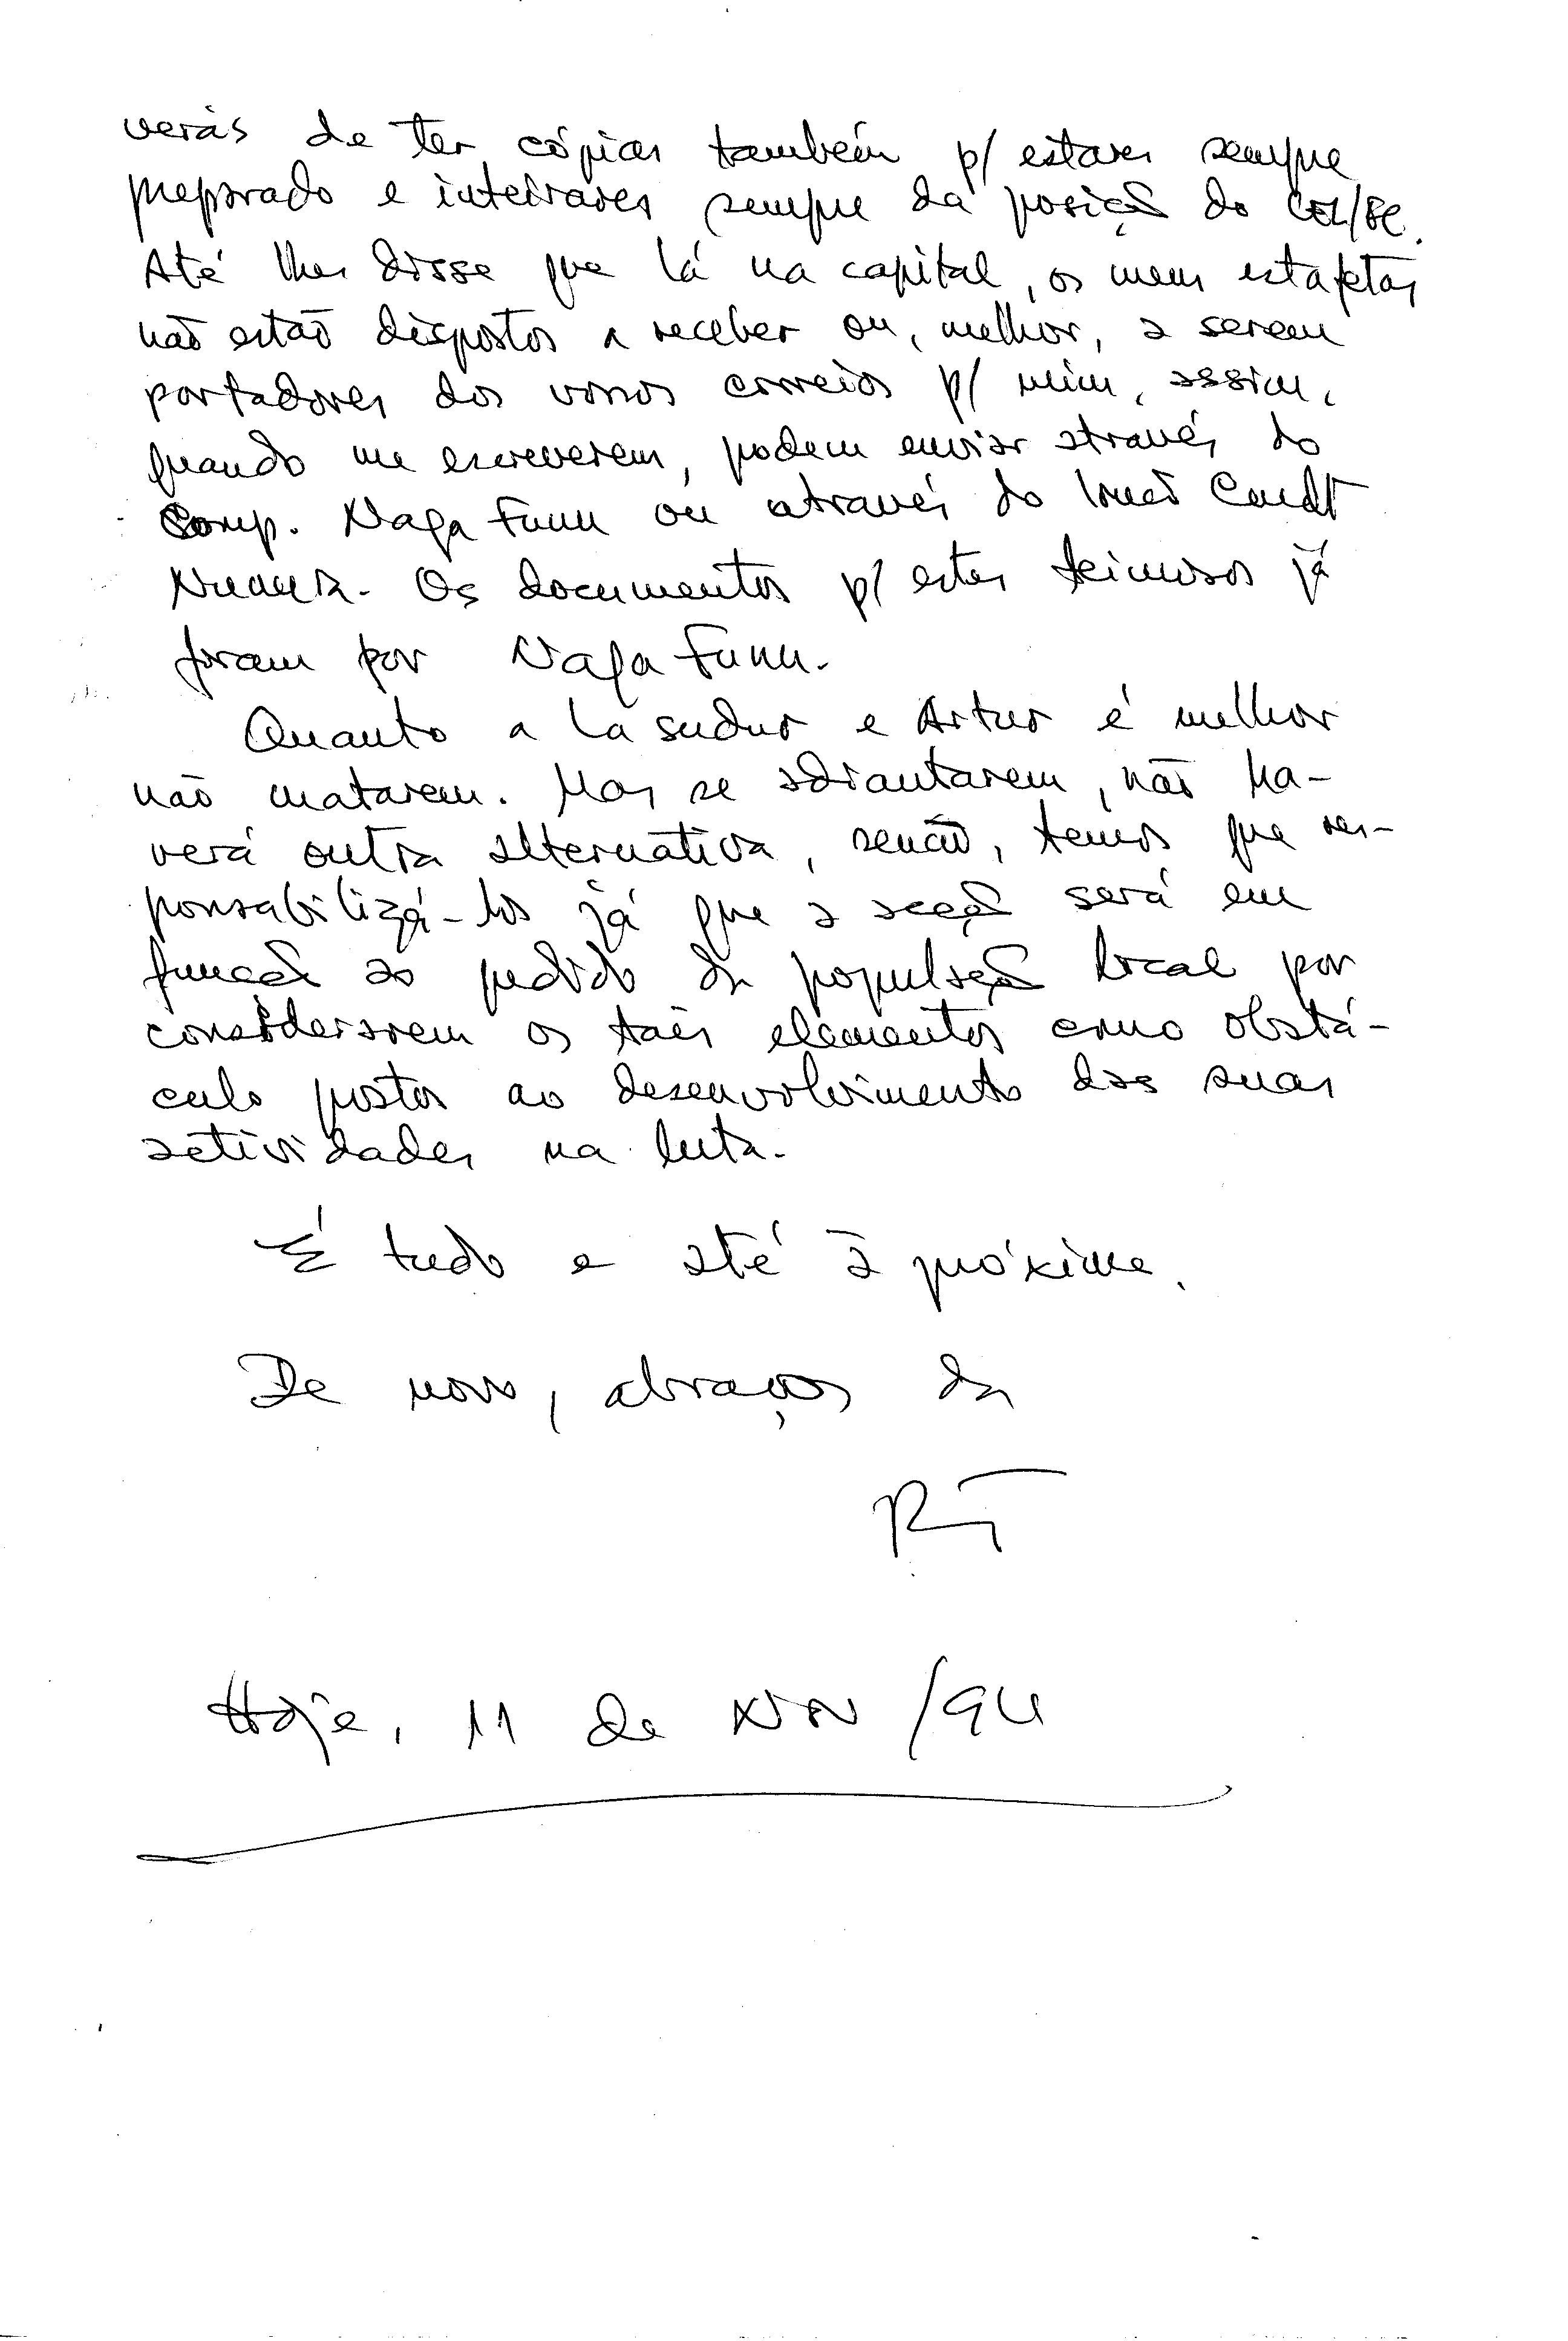 verás de ter cópias também p/ estares sempre
preparado e inteirares sempre da posição do CEL/FC.
Até lhes disse que lá na capital, os meus estafetas
não estão dispostos a receber ou, melhor, a serem
portadores dos vossos correios p/ mim, assim,
quando me escreverem, podem enviar através do
Comp. Naga Funu ou através do Irmão Cmdt
Os documentos p/ estes teimosos já
foram por Nafa Funu.
Quanto a Lasudur e Artur é melhor
não matarem. Mas se adiantarem, não ha-
verá outra alternativa, senão, temos que res-
ponsabilizá-los já que a acção será em
função ao pedido da população local por
considerarem os tais elementos como obstá-
culo postos ao desenvolvimento das suas
actividades na luta.
É tudo e até à próxima.
De novo, abraços da
Hoje, 11 de NOV/94